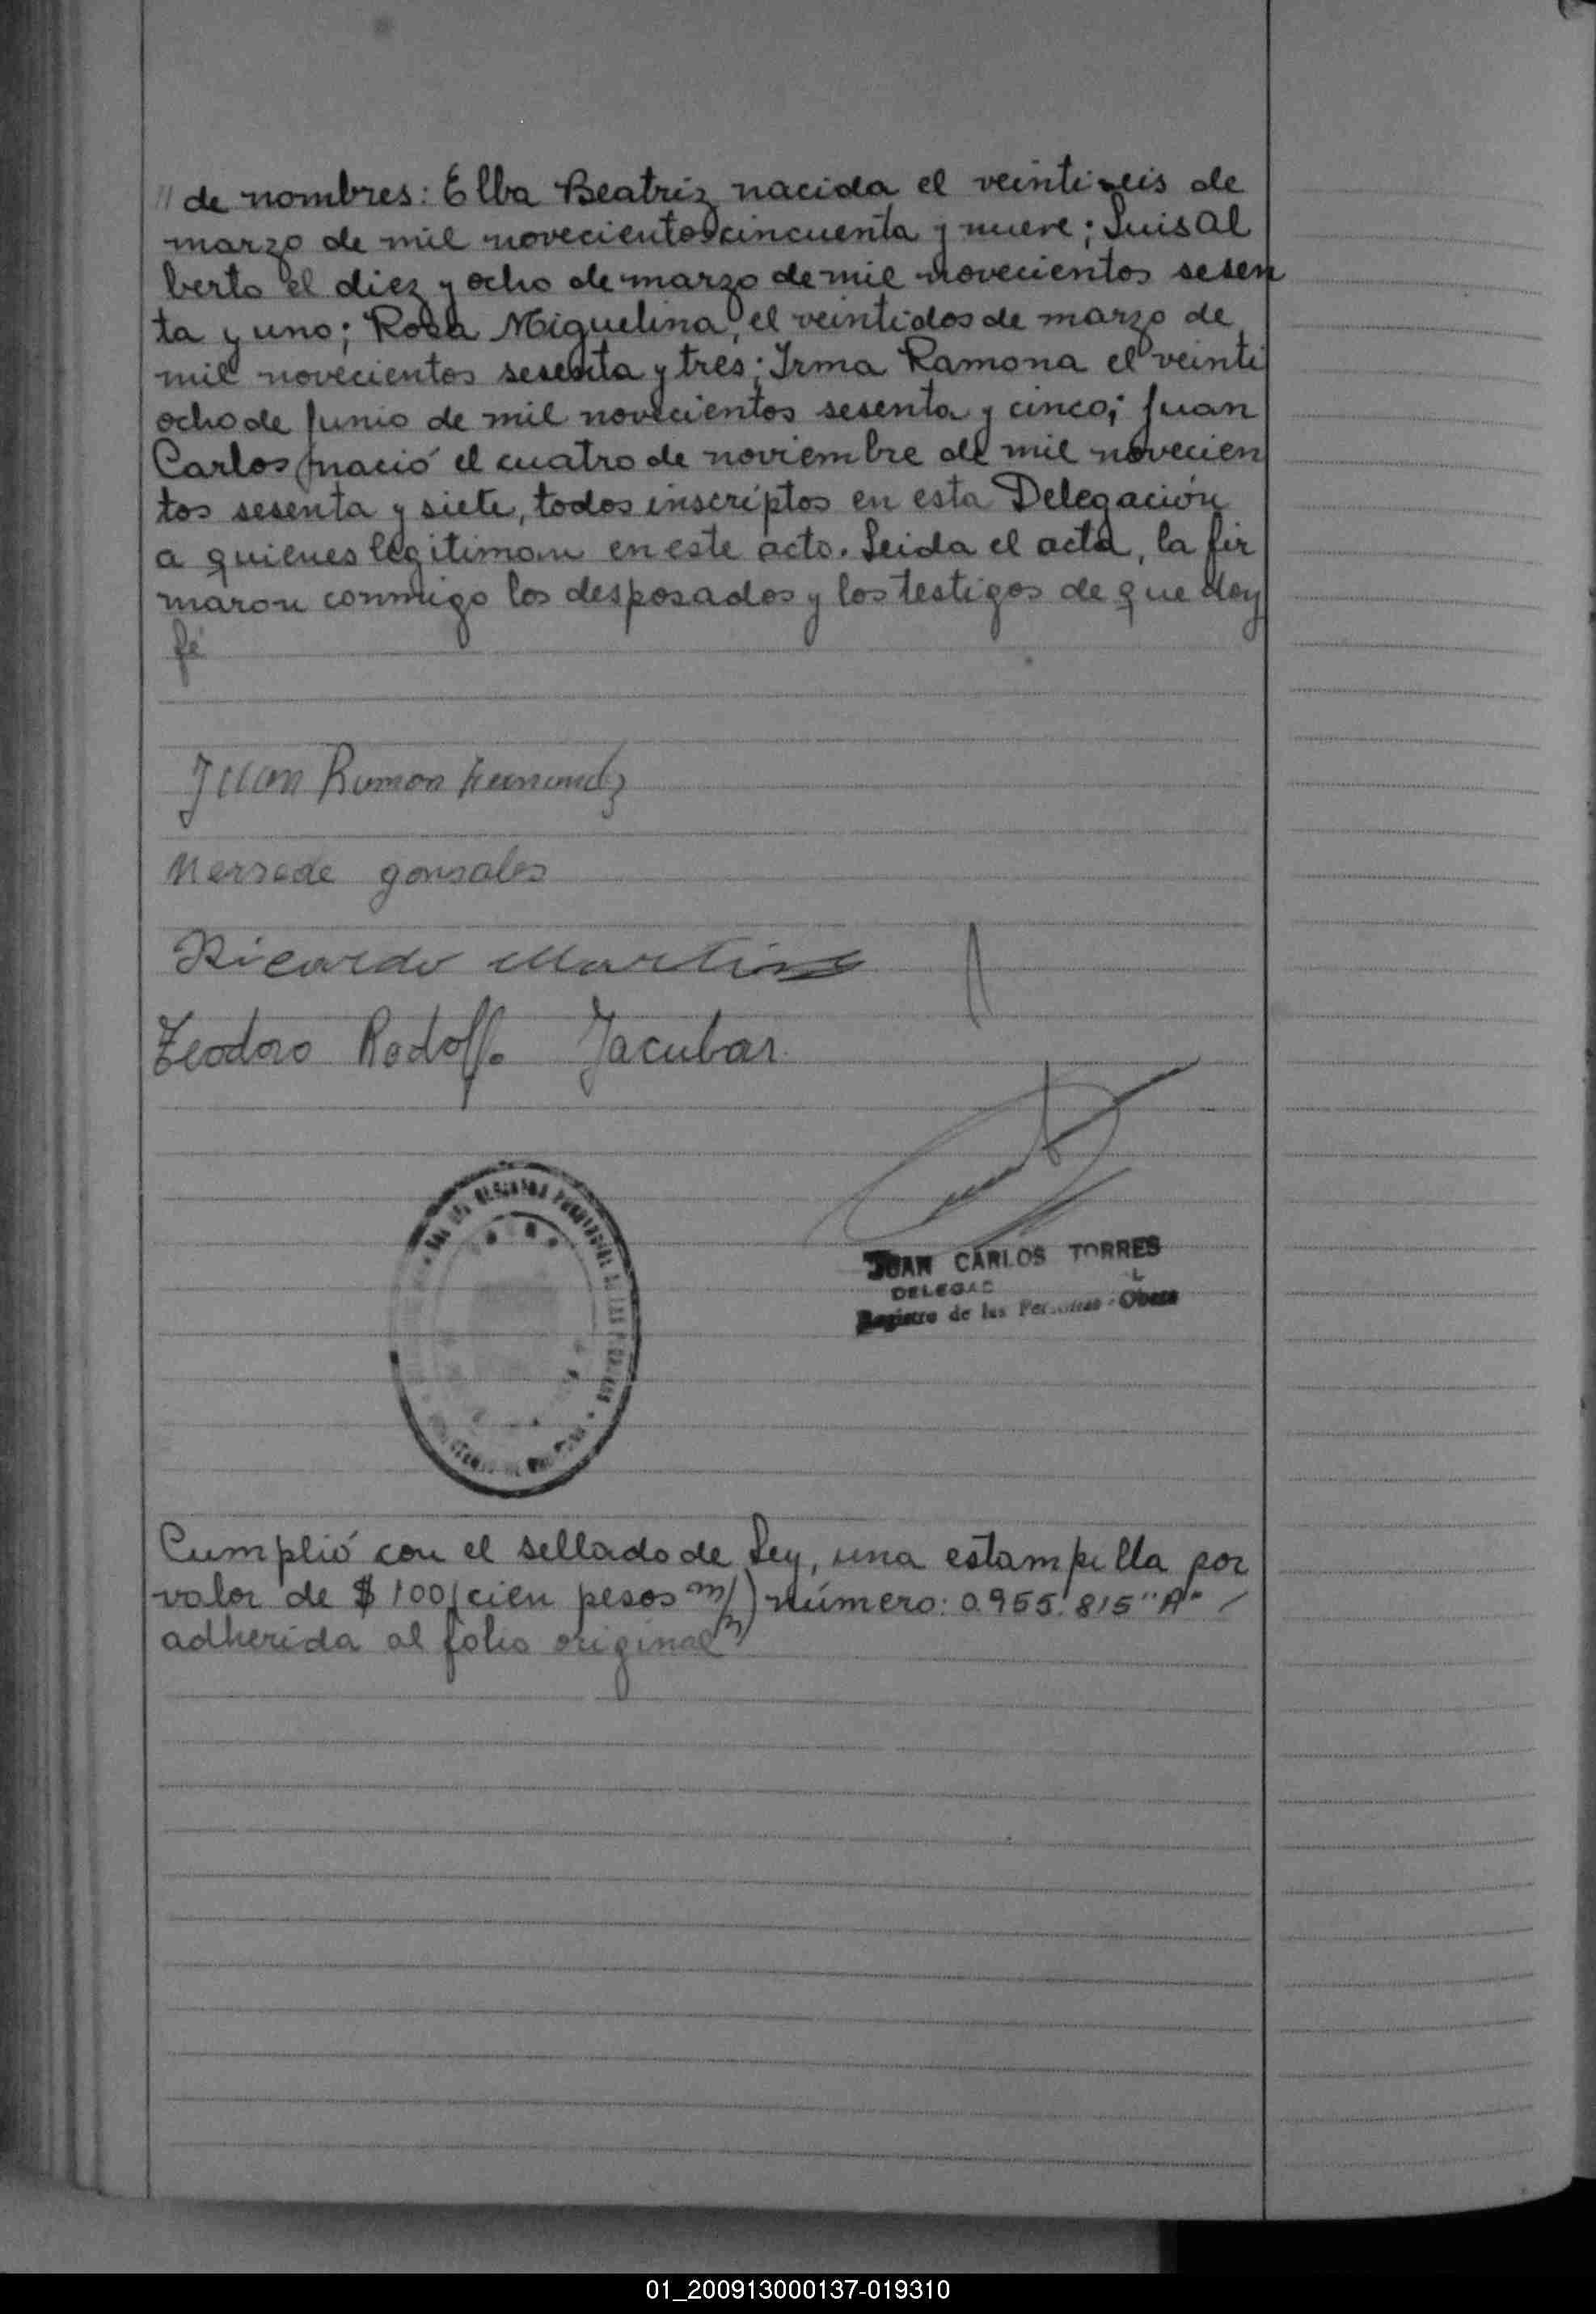 " de nombres: Elba Beatriz nacida el veintiseis de
marzo de mil novecientos cincuenta y nueve; Luis Al
berto el diez y ocho de marzo de mil novecientos sesen
ta y uno; Rosa Miguelina, el veintidos de marzo de
mil novecientos sesenta y tres; Irma Ramona el veinti
ocho de Junio de mil novecientos sesenta y cinco; Juan
Carlos nació el cuatro de noviembre de mil novecien
tos sesenta y siete, todos inscriptos en esta Delegación
a quienes legitiman en este acto. Leida el acta, la fir
maron conmigo los desposados y los testigos de que doy
fé
Juan Ramon
Mersede gonsales
Ricardo Martins
Teodoro Rodolfo Jacubar
JUAN CARLOS TORRES
DELEGAD
Registro de las Personas - Obera
Cumplió con el sellado de Ley, una estampilla por
valor de $ 100 (cien pesos m/n) número: 0.955.815 "A"
adherida al folio original
01_200913000137-019310